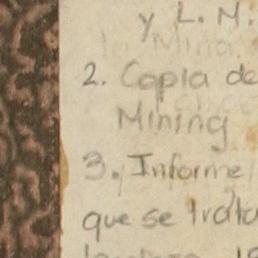 y L. M.
2. Copia de
Mining
3. Informe
que se trata